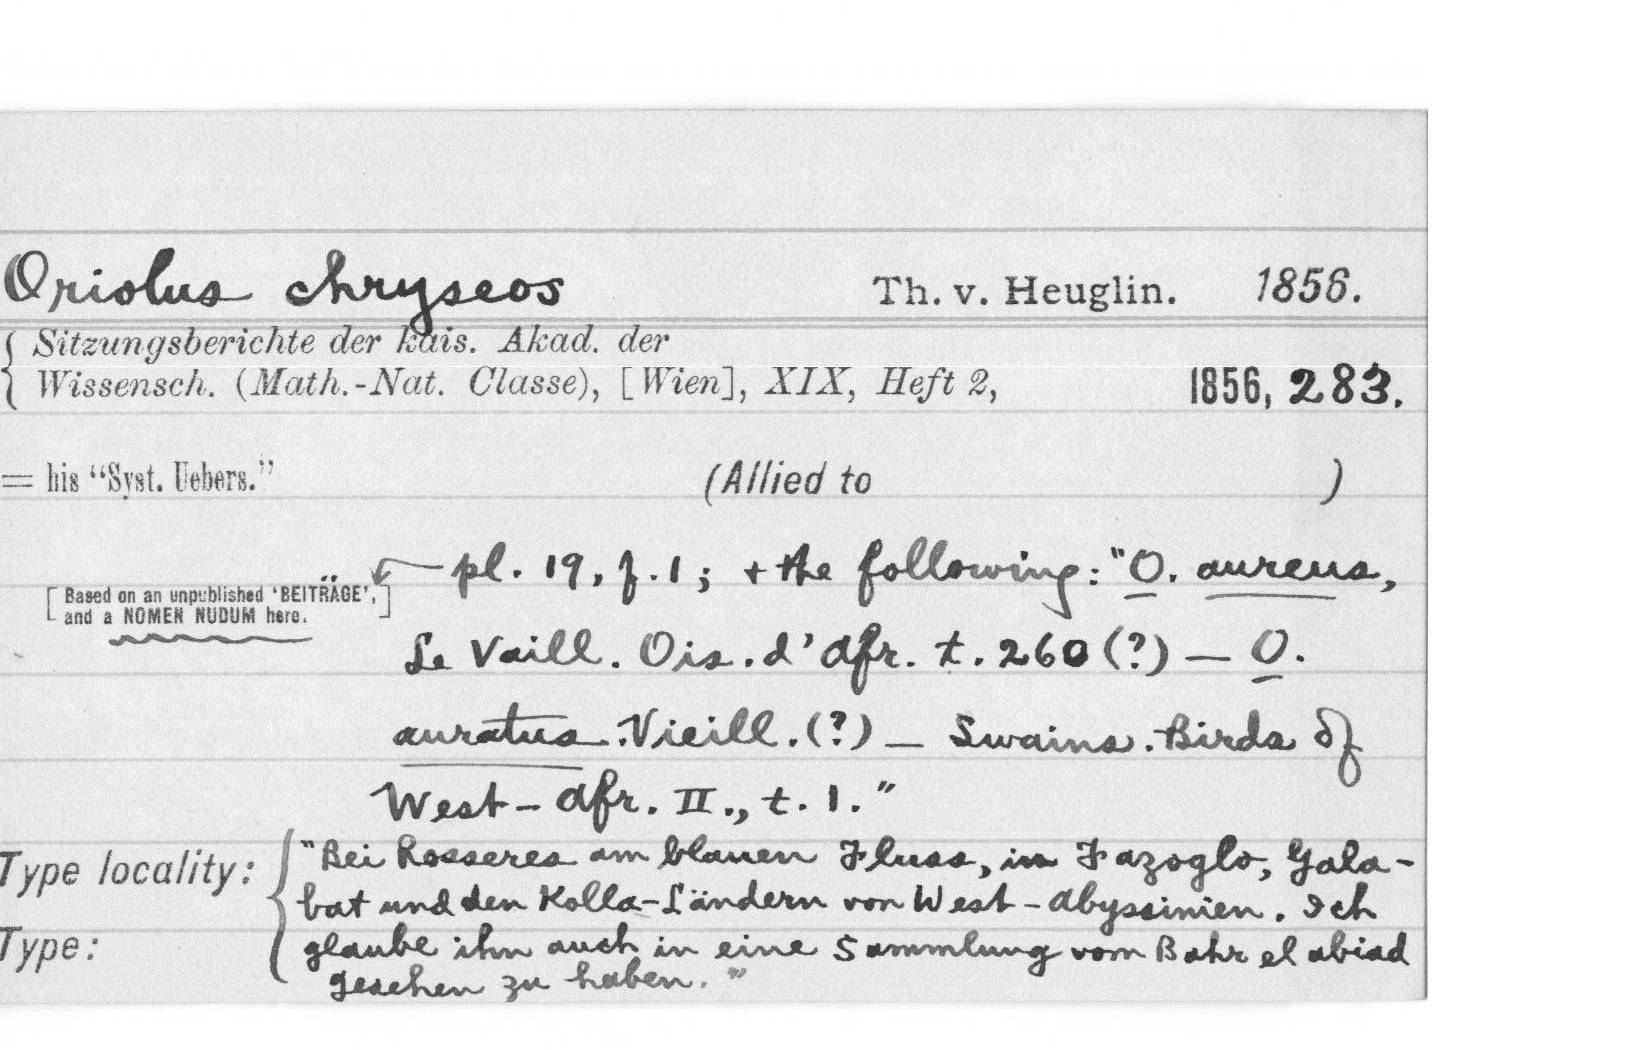 Oriolus chryseos Th. v. Heuglin. 1856.
Sitzungsberichte der kais. Akad. der
Wissensch. (Math.-Nat. Classe), [Wien], XIX, Heft 2, 1856, 283.
= his “Syst. Uebers.” (Allied to )
pl. 19, f. 1; + the following: "O. aureus,
[Based on an unpublished ‘BEITRÄGE’,
and a NOMEN NUDUM here.]
Le Vaill. Ois. d'Afr. t. 260 (?) — O.
auratus. Vieill. (?) — Swains. Birds of
West-Afr. II., t. 1."
Type locality: "Bei Rosseres am blauen Fluss, in Fazoglo, Gala-
bat und den Kolla-Ländern von West-Abyssinien. Ich
Type: glaube ihn auch in eine Sammlung vom Bahr el abiad
gesehen zu haben."